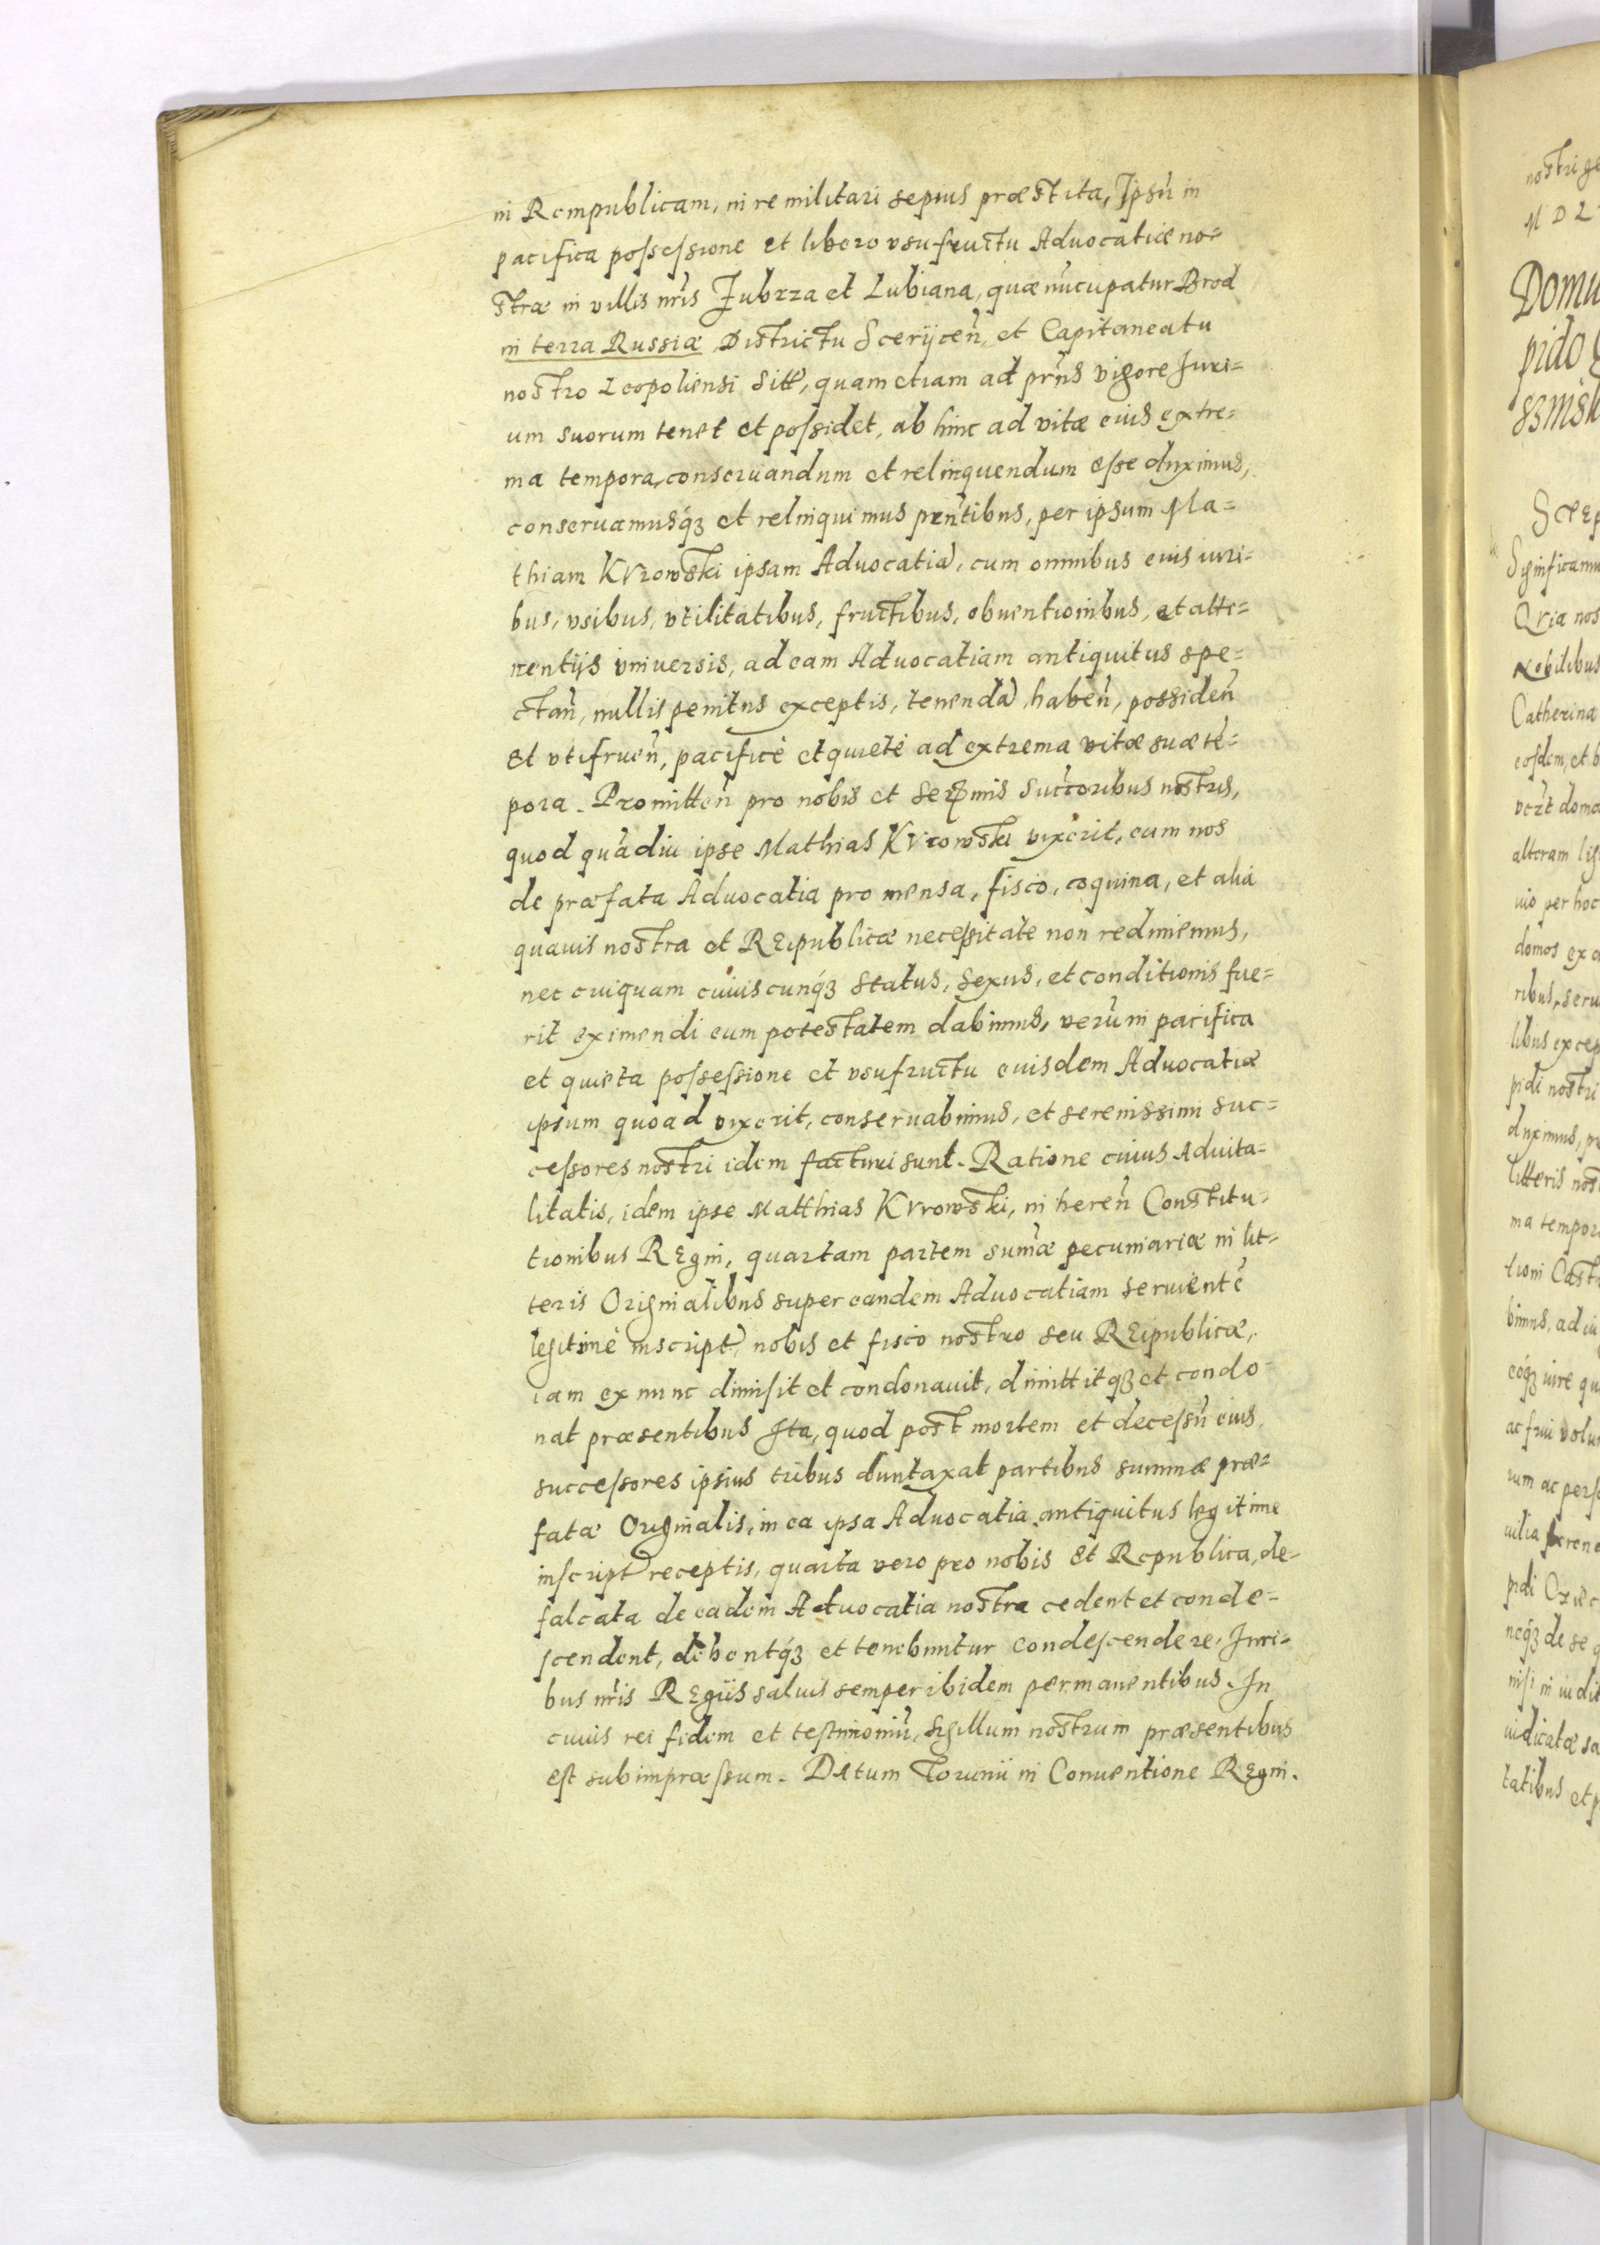 in Rempublicam, in re militari sepius præstita, Ipsũ in
pacifica possessione et libero vsufructu Aduocatiæ no=
stræ in villis nr̃is Jubrza et Lubiana, quæ nũcupatur Brod
in terra Russiæ Districtu Scerijceñ, et Capitaneatu
nostro Leopoliensi Sitt, quam etiam ad pr̃ns vigore Juri=
um suorum tenet et possidet, ab hinc ad vitæ eius extre=
ma tempora, conseruandum et relinquendum esse duximus,
conseruamusq́ʒ et relinquimus prñtibus, per ipsum Ma=
thiam Kvrowski ipsam Aduocatiã, cum omnibus eius iuri=
bus, vsibus, vtilitatibus, fructibus, obuentionibus, et atti=
nentijs vniuersis, ad eam Aduocatiam antiquitus spe=
ctañ, nullis penitus exceptis, tenendã, habeñ, possideñ
et vtifrueñ, pacificè et quietè ad extrema vitæ suæ tẽ=
pora. Promitteñ pro nobis et Sermis Succ̃oribus nostris,
quod quãdiu ipse Mathias Kvrowski vixerit, eum nos
de præfata Aduocatia pro mensa, fisco, coquina, et alia
quauis nostra et Reipublicæ necessitate non redimemus,
nec cuiquam cuiuscunq́ʒ status, sexus, et conditionis fue=
rit eximendi eum potestatem dabimus, verũ in pacifica
et quieta possessione et vsufructu eiusdem Aduocatiæ
ipsum quoad vixerit, conseruabimus, et serenissimi suc=
cessores nostri idem facturi sunt. Ratione cuius Aduita=
litatis, idem ipse Matthias Kvrowski, in hereñ Constitu=
tionibus Regni, quartam partem sum̃æ pecuniariæ in lit=
teris Originalibus super eandem Aduocatiam seruientẽ
legitimè inscript, nobis et fisco nostro seu Reipublicæ,
iam ex nunc dimisit et condonauit, dimittitqʒ et condo=
nat præsentibus Ita, quod post mortem et decessũ eius,
successores ipsius tribus duntaxat partibus summæ præ=
fatæ Originalis, in ea ipsa Aduocatia antiquitus legitime
inscript receptis, quarta vero pro nobis et Republica, de=
falcata de eadem Aduocatia nostra cedent et conde=
scendent, debentq́ʒ et tenebuntur condescendere. Juri=
bus nr̃is Regijs saluis semper ibidem permanentibus. In
cuius rei fidem et testimoniũ, Sigillum nostrum præsentibus
est subimpræssum. Datum Torunij in Conuentione Regni.
nostri ge
Domu
pido
Signific
Qria nos
Nobilibus
Catherina
eosdem, et b
alteram
uio per hoc
domos ex a
ribus, seru
libus excep
pidi nostri
duximus, p
litteris nos
ma tempor
tioni Cast
bimus, ad iu
eóqʒ iure qu
ac frui volu
rum ac perso
pidi
neq́ʒ de se q
nisi in iudi
iudicatæ sa
tatibus et p